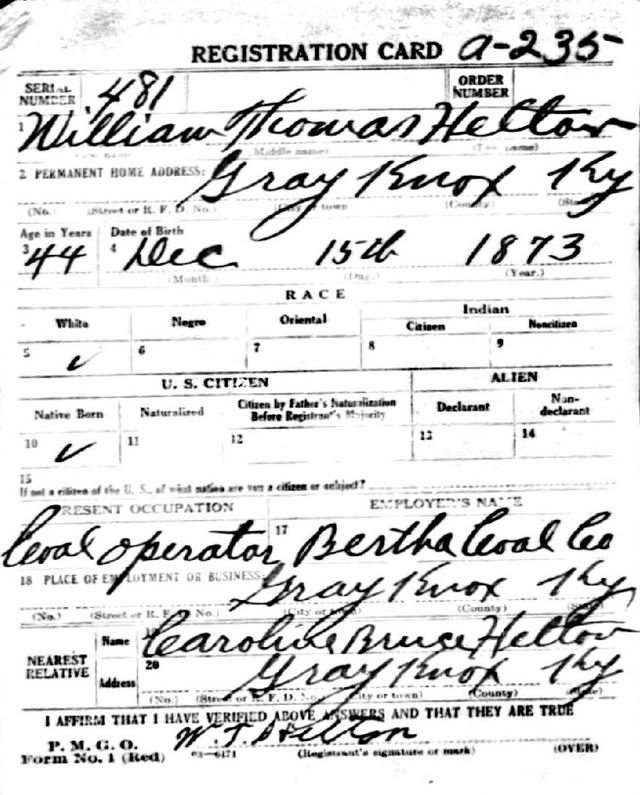 REGISTRATION CARD a-235
SERIAL NUMBER 481 ORDER NUMBER
1 William Thomas Helton
(Middle name)
2 PERMANENT HOME ADDRESS: Gray Knox Ky
(No.) (Street or R. F. D. No.) (City or town) (County) (State)
Age in Years Date of Birth
3 44 4 Dec 15th 1873
(Month) (Day.) (Year.)
RACE
White Negro Oriental Indian
Citizen Noncitizen
5 ✓ 6 7 8 9
U. S. CITIZEN ALIEN
Native Born Naturalized Citizen by Father's Naturalization Before Registrant's Majority Declarant Non-declarant
10 ✓ 11 12 13 14
15
If not a citizen of the U. S., of what nation are you a citizen or subject?
PRESENT OCCUPATION EMPLOYER'S NAME
Coal operator 17 Bertha Coal Co
18 PLACE OF EMPLOYMENT OR BUSINESS: Gray Knox Ky
(No.) (Street or R. F. D. No.) (City or town) (County) (State)
NEAREST RELATIVE Name Caroline Bruce Helton
20 Address Gray Knox Ky
(No.) (Street or R. F. D. No.) (City or town) (County) (State)
I AFFIRM THAT I HAVE VERIFIED ABOVE ANSWERS AND THAT THEY ARE TRUE
P. M. G. O. W. T. Helton
Form No. 1 (Red) 03—6171 (Registrant's signature or mark) (OVER)